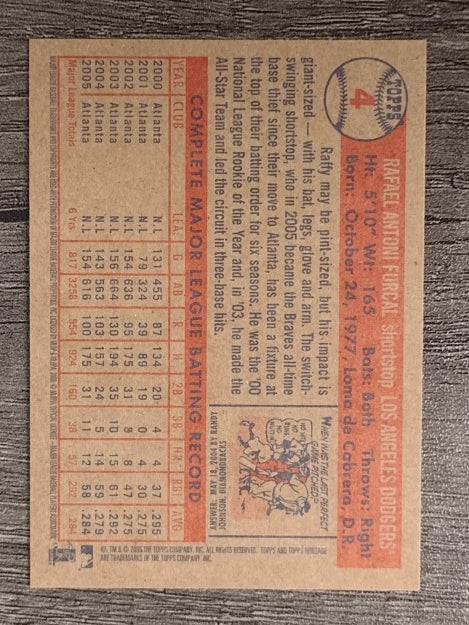 TOPPS
4
RAFAEL ANTONI FURCAL shortstop LOS ANGELES DODGERS
Ht: 5'10" Wt: 165 Bats: Both Throws: Right
Born: October 24, 1977, Loma de Cabrera, D.R.
Raffy may be pint-sized, but his impact is
giant-sized — with his bat, legs, glove and arm. The switch-
swinging shortstop, who in 2005 became the Braves all-time
base thief since their move to Atlanta, has been a fixture at
the top of their batting order for six seasons. He was the '00
National League Rookie of the Year and, in '03, he made the
All-Star Team and led the circuit in three-base hits.
WHEN WAS THE LAST PERFECT
GAME PITCHED?
ANSWER: MAY 18, 2004 BY RANDY
JOHNSON, DIAMONDBACKS
COMPLETE MAJOR LEAGUE BATTING RECORD
YEAR CLUB LEA. G AB R H 2B 3B HR RBI AVG.
2000 Atlanta N.L 131 455 87 134 20 4 4 37 .295
2001 Atlanta N.L 79 324 39 89 19 0 4 30 .275
2002 Atlanta N.L 154 636 95 175 31 8 8 47 .275
2003 Atlanta N.L 156 664 130 194 35 10 15 61 .292
2004 Atlanta N.L 143 563 103 157 24 5 14 59 .279
2005 Atlanta N.L 154 616 100 175 31 11 12 58 .284
Major League Totals 6 Yrs. 817 3258 554 924 160 38 57 292 .284
®, TM & © 2006 THE TOPPS COMPANY, INC. ALL RIGHTS RESERVED. TOPPS AND TOPPS HERITAGE
ARE TRADEMARKS OF THE TOPPS COMPANY, INC.